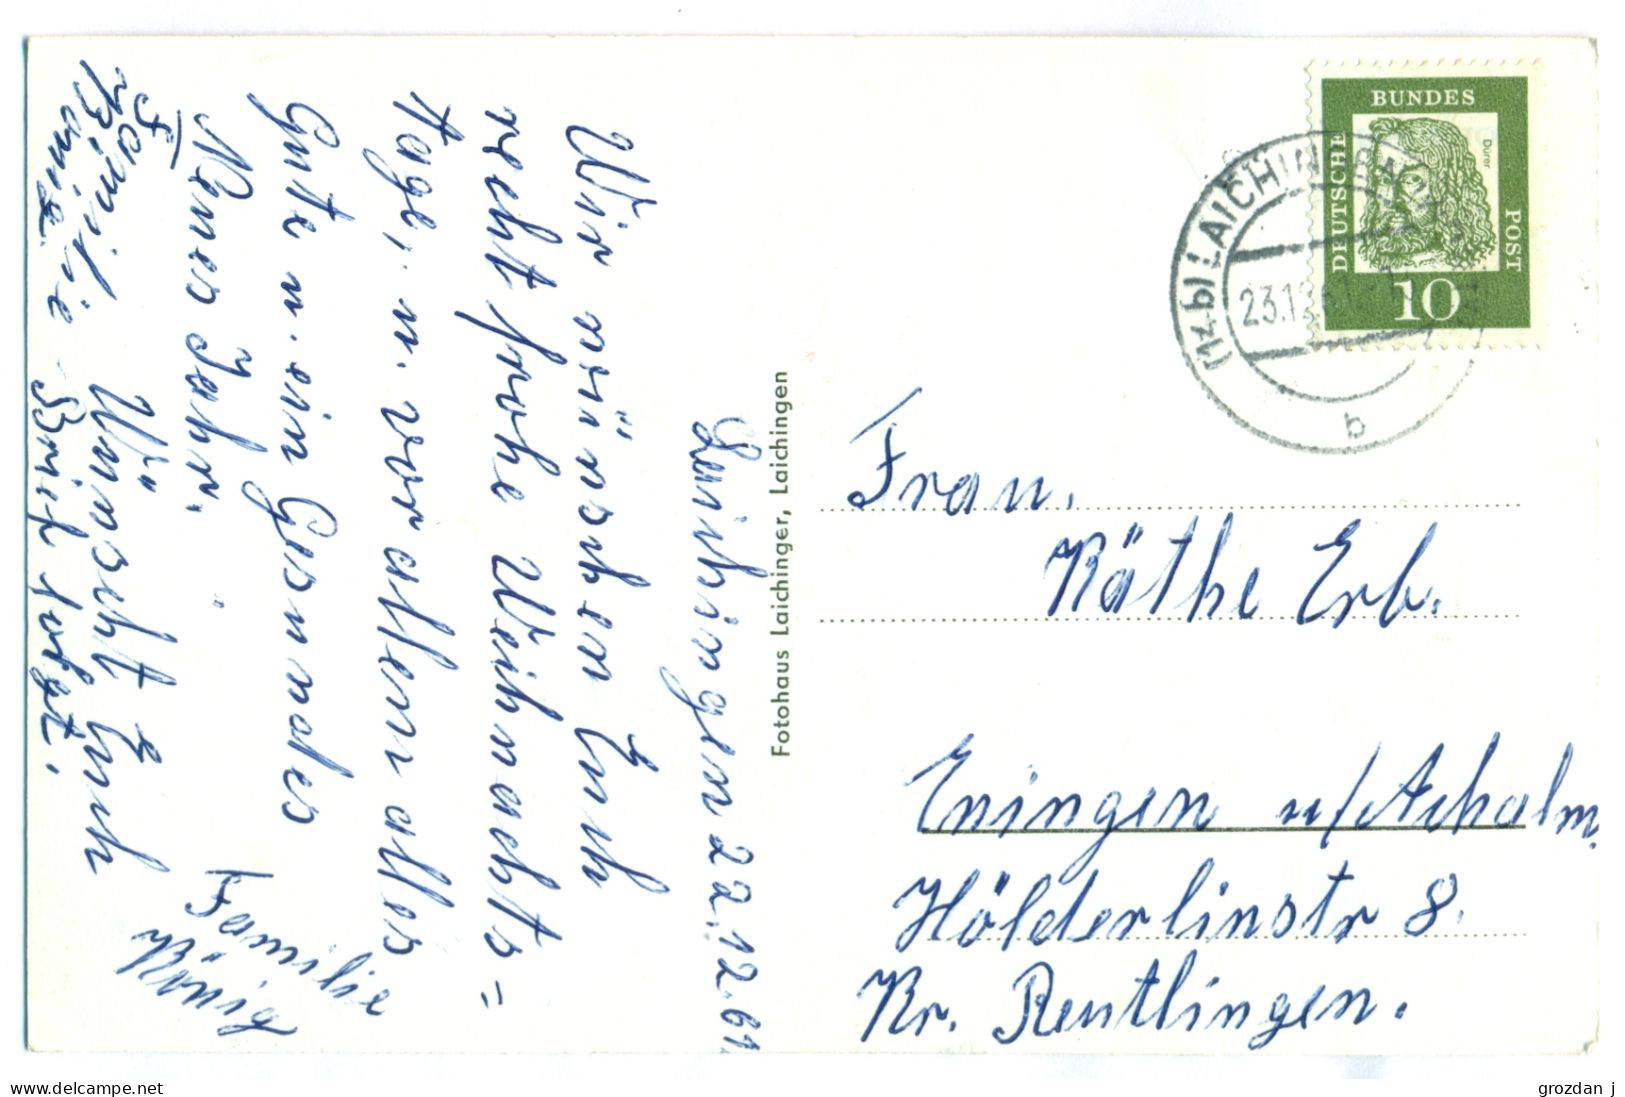 Laichingen 22.12.61
Wir wünschen Euch
recht frohe Weihnachts=
tage, u. vor allem alles
Gute u. ein Gesundes
Neues Jahr.
Familie
König
Familie Wünscht Euch
Brief folgt.
Fotohaus Laichinger, Laichingen
BUNDES
DEUTSCHE
POST
Dürer
10
(14b) LAICHINGEN
23.12.61
b
Frau.
Käthe Erb.
Eningen u/Achalm
Hölderlinstr 8.
Kr. Reutlingen.
www.delcampe.net
grozdan j